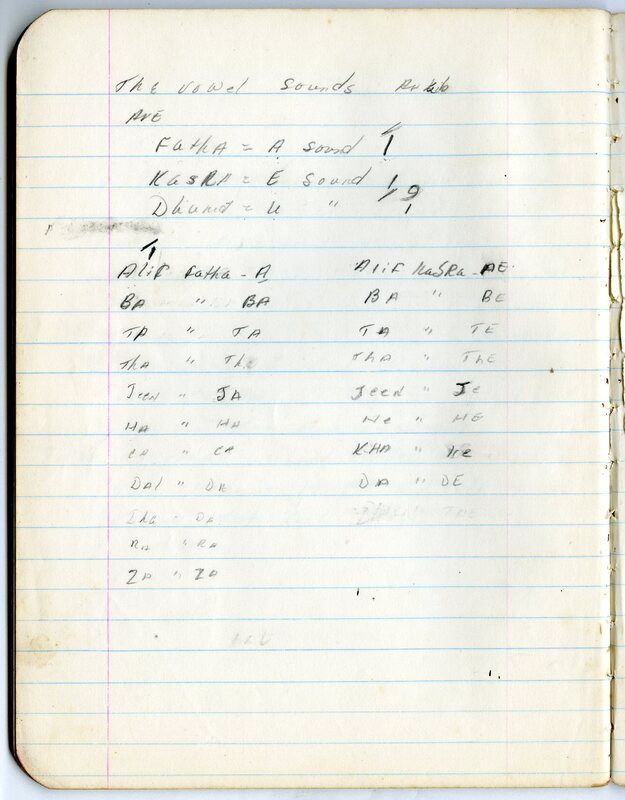 The vowel sounds
ARE
FatHA = A sound
KasRA = E sound
= U "
Alif Fatha - A    Alif KaSRa - AE
BA " BA    BA " BE
TA " TA    TA " TE
ThA " Th    ThA " ThE
Jeen " JA    Jeen " Je
HA " HA    He " HE
CA " CA    KHA " He
DAl " DE    DA " DE
RA " RA
ZA " ZA